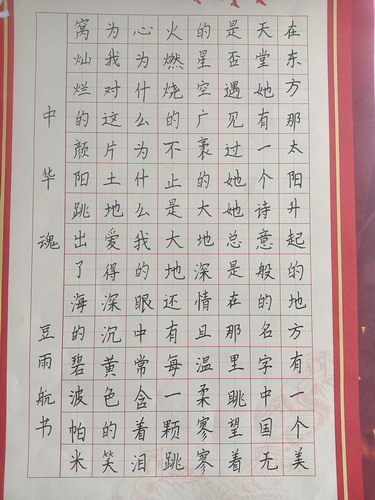 在东方那太阳升起的地方有一个美
天堂她有一个诗意般的名字中国无
是否遇见过她她总是在那里眺望着
的星空广袤的大地深情且温柔寥寥
火燃烧的不止是大地还有每一颗跳
心为什么为什么我的眼中常含着泪
为我对这片土地爱得深沉黄色的笑
窝灿烂的颜阳跳出了海的碧波帕米
中华魂 豆雨航书